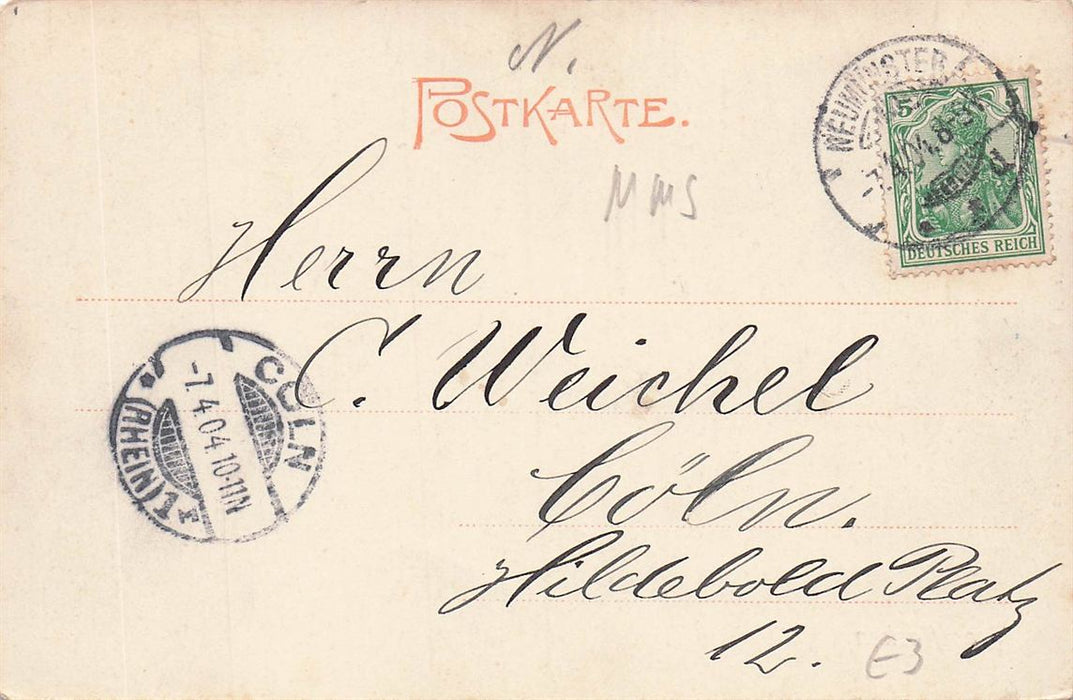 N.
POSTKARTE.
MMS
NEUMÜNSTER
5
DEUTSCHES REICH
Herrn
C. Weichel
Cöln.
Hildebold Platz
12.
E3
CÖLN
-7.4.04.10-11N
(RHEIN) 1